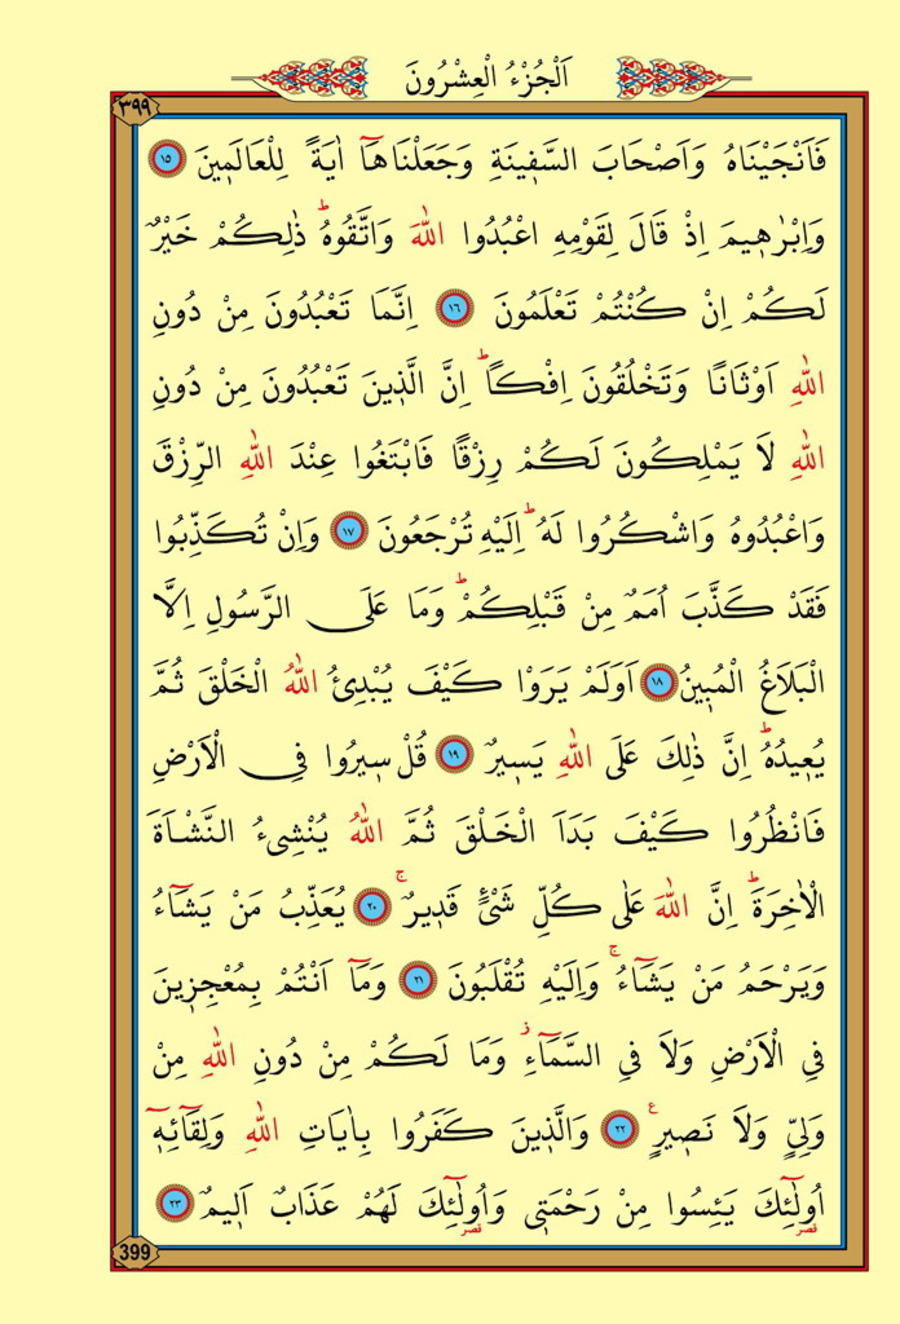 اَلْجُزْءُ الْعِشْرُونَ
٣٩٩
فَاَنْجَيْنَاهُ وَاَصْحَابَ السَّفٖينَةِ وَجَعَلْنَاهَٓا اٰيَةً لِلْعَالَمٖينَ ١٥
وَاِبْرٰهٖيمَ اِذْ قَالَ لِقَوْمِهِ اعْبُدُوا اللّٰهَ وَاتَّقُوهُؕ ذٰلِكُمْ خَيْرٌ
لَكُمْ اِنْ كُنْتُمْ تَعْلَمُونَ ١٦ اِنَّمَا تَعْبُدُونَ مِنْ دُونِ
اللّٰهِ اَوْثَانًا وَتَخْلُقُونَ اِفْكًاؕ اِنَّ الَّذٖينَ تَعْبُدُونَ مِنْ دُونِ
اللّٰهِ لَا يَمْلِكُونَ لَكُمْ رِزْقًا فَابْتَغُوا عِنْدَ اللّٰهِ الرِّزْقَ
وَاعْبُدُوهُ وَاشْكُرُوا لَهُؕ اِلَيْهِ تُرْجَعُونَ ١٧ وَاِنْ تُكَذِّبُوا
فَقَدْ كَذَّبَ اُمَمٌ مِنْ قَبْلِكُمْؕ وَمَا عَلَى الرَّسُولِ اِلَّا
الْبَلَاغُ الْمُبٖينُ ١٨ اَوَلَمْ يَرَوْا كَيْفَ يُبْدِئُ اللّٰهُ الْخَلْقَ ثُمَّ
يُعٖيدُهُؕ اِنَّ ذٰلِكَ عَلَى اللّٰهِ يَسٖيرٌ ١٩ قُلْ سٖيرُوا فِى الْاَرْضِ
فَانْظُرُوا كَيْفَ بَدَاَ الْخَلْقَ ثُمَّ اللّٰهُ يُنْشِئُ النَّشْاَةَ
الْاٰخِرَةَؕ اِنَّ اللّٰهَ عَلٰى كُلِّ شَیْءٍ قَدٖيرٌۚ ٢٠ يُعَذِّبُ مَنْ يَشَٓاءُ
وَيَرْحَمُ مَنْ يَشَٓاءُۚ وَاِلَيْهِ تُقْلَبُونَ ٢١ وَمَٓا اَنْتُمْ بِمُعْجِزٖينَ
فِي الْاَرْضِ وَلَا فِي السَّمَٓاءِؗ وَمَا لَكُمْ مِنْ دُونِ اللّٰهِ مِنْ
وَلِيٍّ وَلَا نَصٖيرٍ ع ٢٢ وَالَّذٖينَ كَفَرُوا بِاٰيَاتِ اللّٰهِ وَلِقَٓائِهٖٓ
اُو۬لٰٓئِكَ يَئِسُوا مِنْ رَحْمَتٖى وَاُو۬لٰٓئِكَ لَهُمْ عَذَابٌ اَلٖيمٌ ٢٣
قصر قصر
399